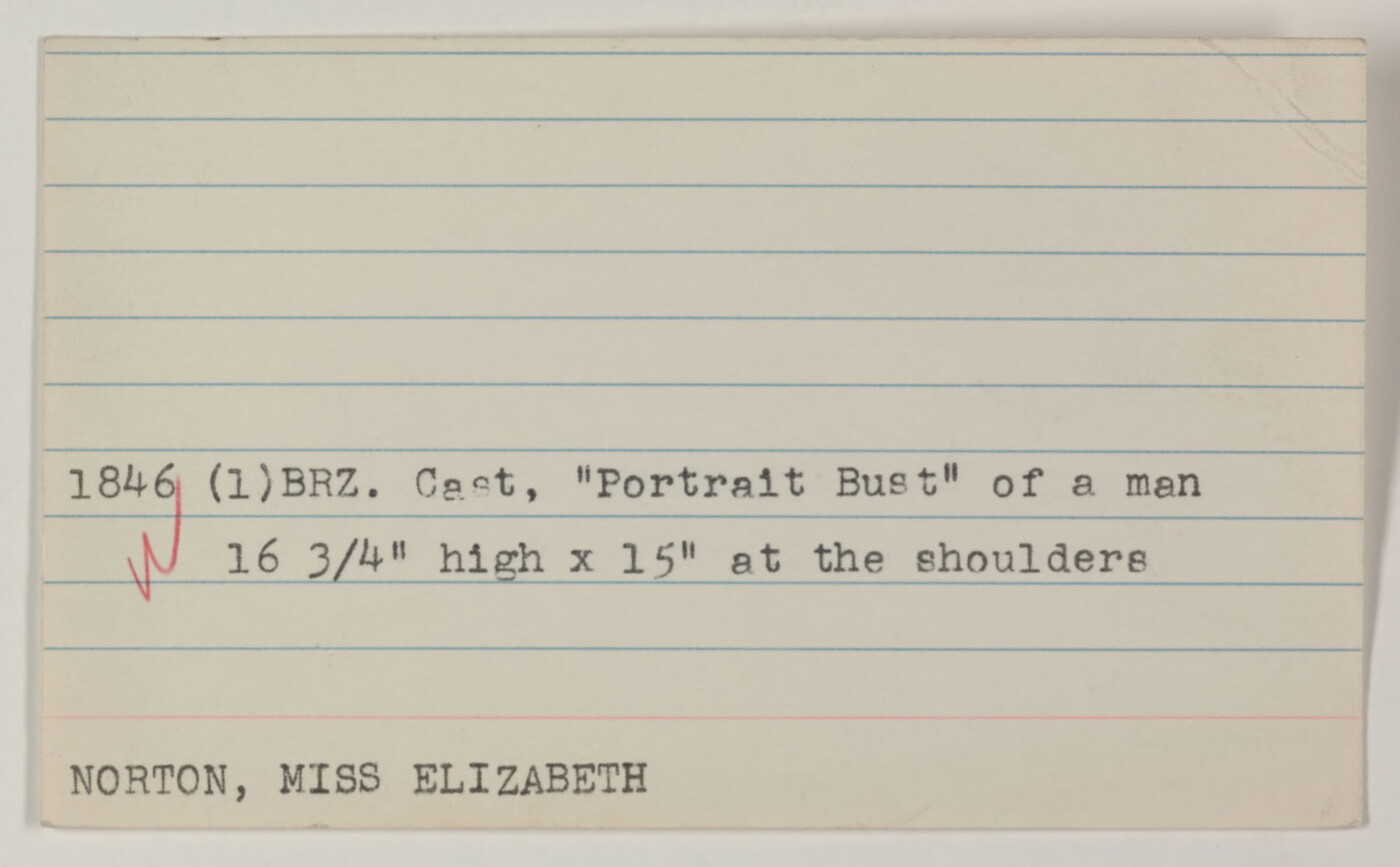 1846 (1)BRZ. Cast, "Portrait Bust" of a man
16 3/4" high x 15" at the shoulders
NORTON, MISS ELIZABETH